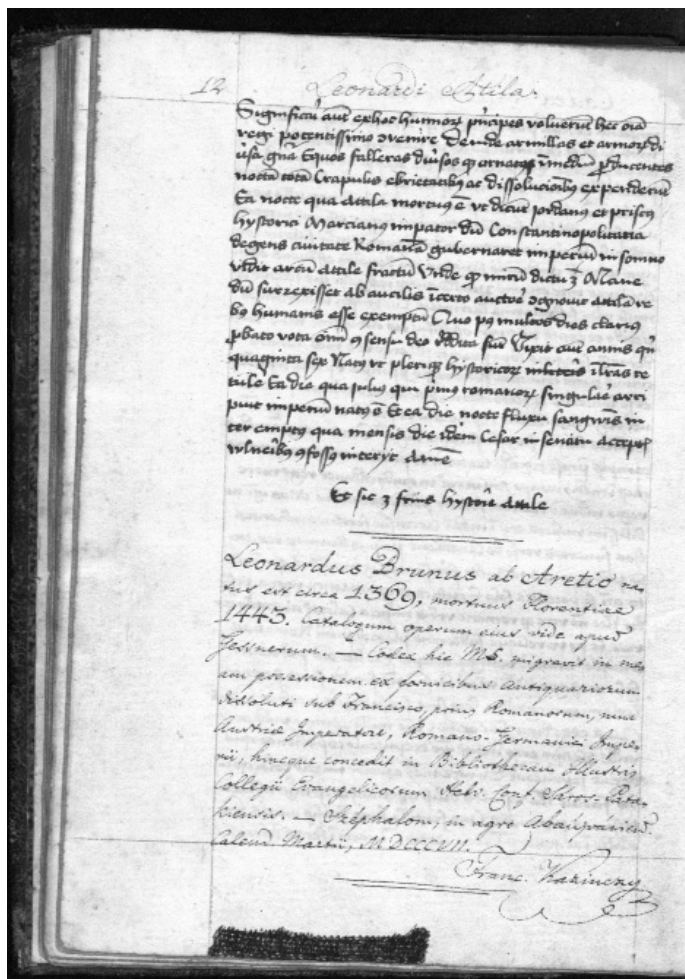 12 Leonardi Attila.
Significatu autē ex hoc humorē principes voluerunt hec oīa
regi potentissimo Deinde armillas et
gn̄a Equos falleras
noctā totā Crapulis ebrietatibus ac dissolucionibus expenderunt
Ea nocte qua Attila mortuus ē vt dicūt Jordanus et priscus
hystorici Marcianus impator dū Constantinopolitana
degens ciuitate Romanū gubernaret imperiū in somno
vidit arcū Attile fractū dictu Mane
dū surrexisset ab aucilis īcerto auctore cognouit attilā re
bus humanis esse exemptū Quo post multos dies clarius
probato vota omī consensu deo reddita sūt Vixit autē annis qn̄
quaginta sex Natus vt hystoricorū re
tulē Ea die qua Julius qui primus romanorū singularē arri
puit imperiū natus ē Et ea die nocte fluxu sangwīs in
ter emptus qua mensis die idem Cesar in senatu acceptis
vulneribus cōfossus interijt Amē
Et sic ē finis hystorie Attile
Leonardus Brunus ab Aretio na-
tus est circa 1369, mortuus Florentiae
1443. Catalogum operum eius vide apud
Gesnerum. — Codex hic MS. migravit in me-
am possessionem ex fornicibus Antiquariorum
dissoluti sub Francisco, prius Romanorum, nunc
Austriae Imperatore, Romano-Germanici Impe-
rii, hincque concedit in Bibliothecam Illustris
Collegii Evangelicorum Helv. Conf. Sáros-Pata-
kiensis. — Széphalom, in agro Abaújváriensi
Calend. Martii, MDCCCVII.
Franc. Kazinczy